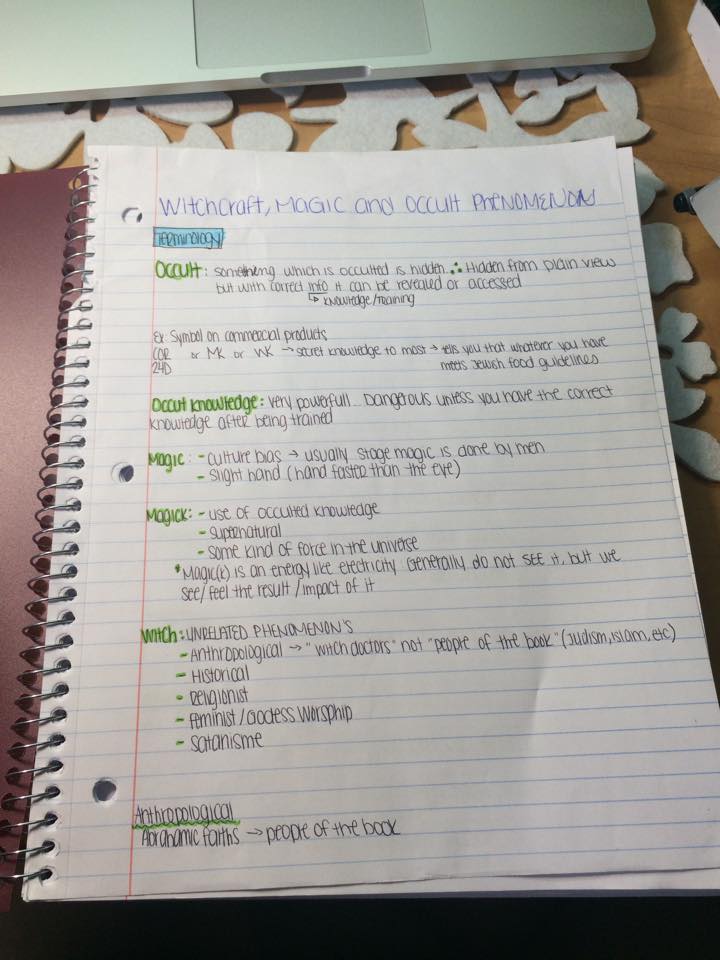 Witchcraft, Magic and Occult Phenomenon
Terminology
Occult: something which is occulted is hidden ∴ Hidden from plain view
but with correct info it can be revealed or accessed
↳ knowledge/training
Ex: Symbol on commercial products
COR or MK or VK → secret knowledge to most → tells you that whatever you have
24D meets Jewish food guidelines
Occut knowledge: very powerfull... Dangerous unless you have the correct
knowledge after being trained
Magic: - culture bias → usually stage magic is done by men
- slight hand (hand faster than the eye)
Magick: - use of occulted knowledge
- supernatural
- some kind of force in the universe
*Magic(k) is an energy like electricity. Generally do not SEE it, but we
see/feel the result/impact of it
Witch: UNRELATED PHENOMENON'S
- Anthropological → "witch doctors" not "people of the book" (Judism, Islam, etc)
- Historical
- Religionist
- Feminist/Godess Worsphip
- Satanisme
Anthropological
Abrahamic Faiths → people of the book